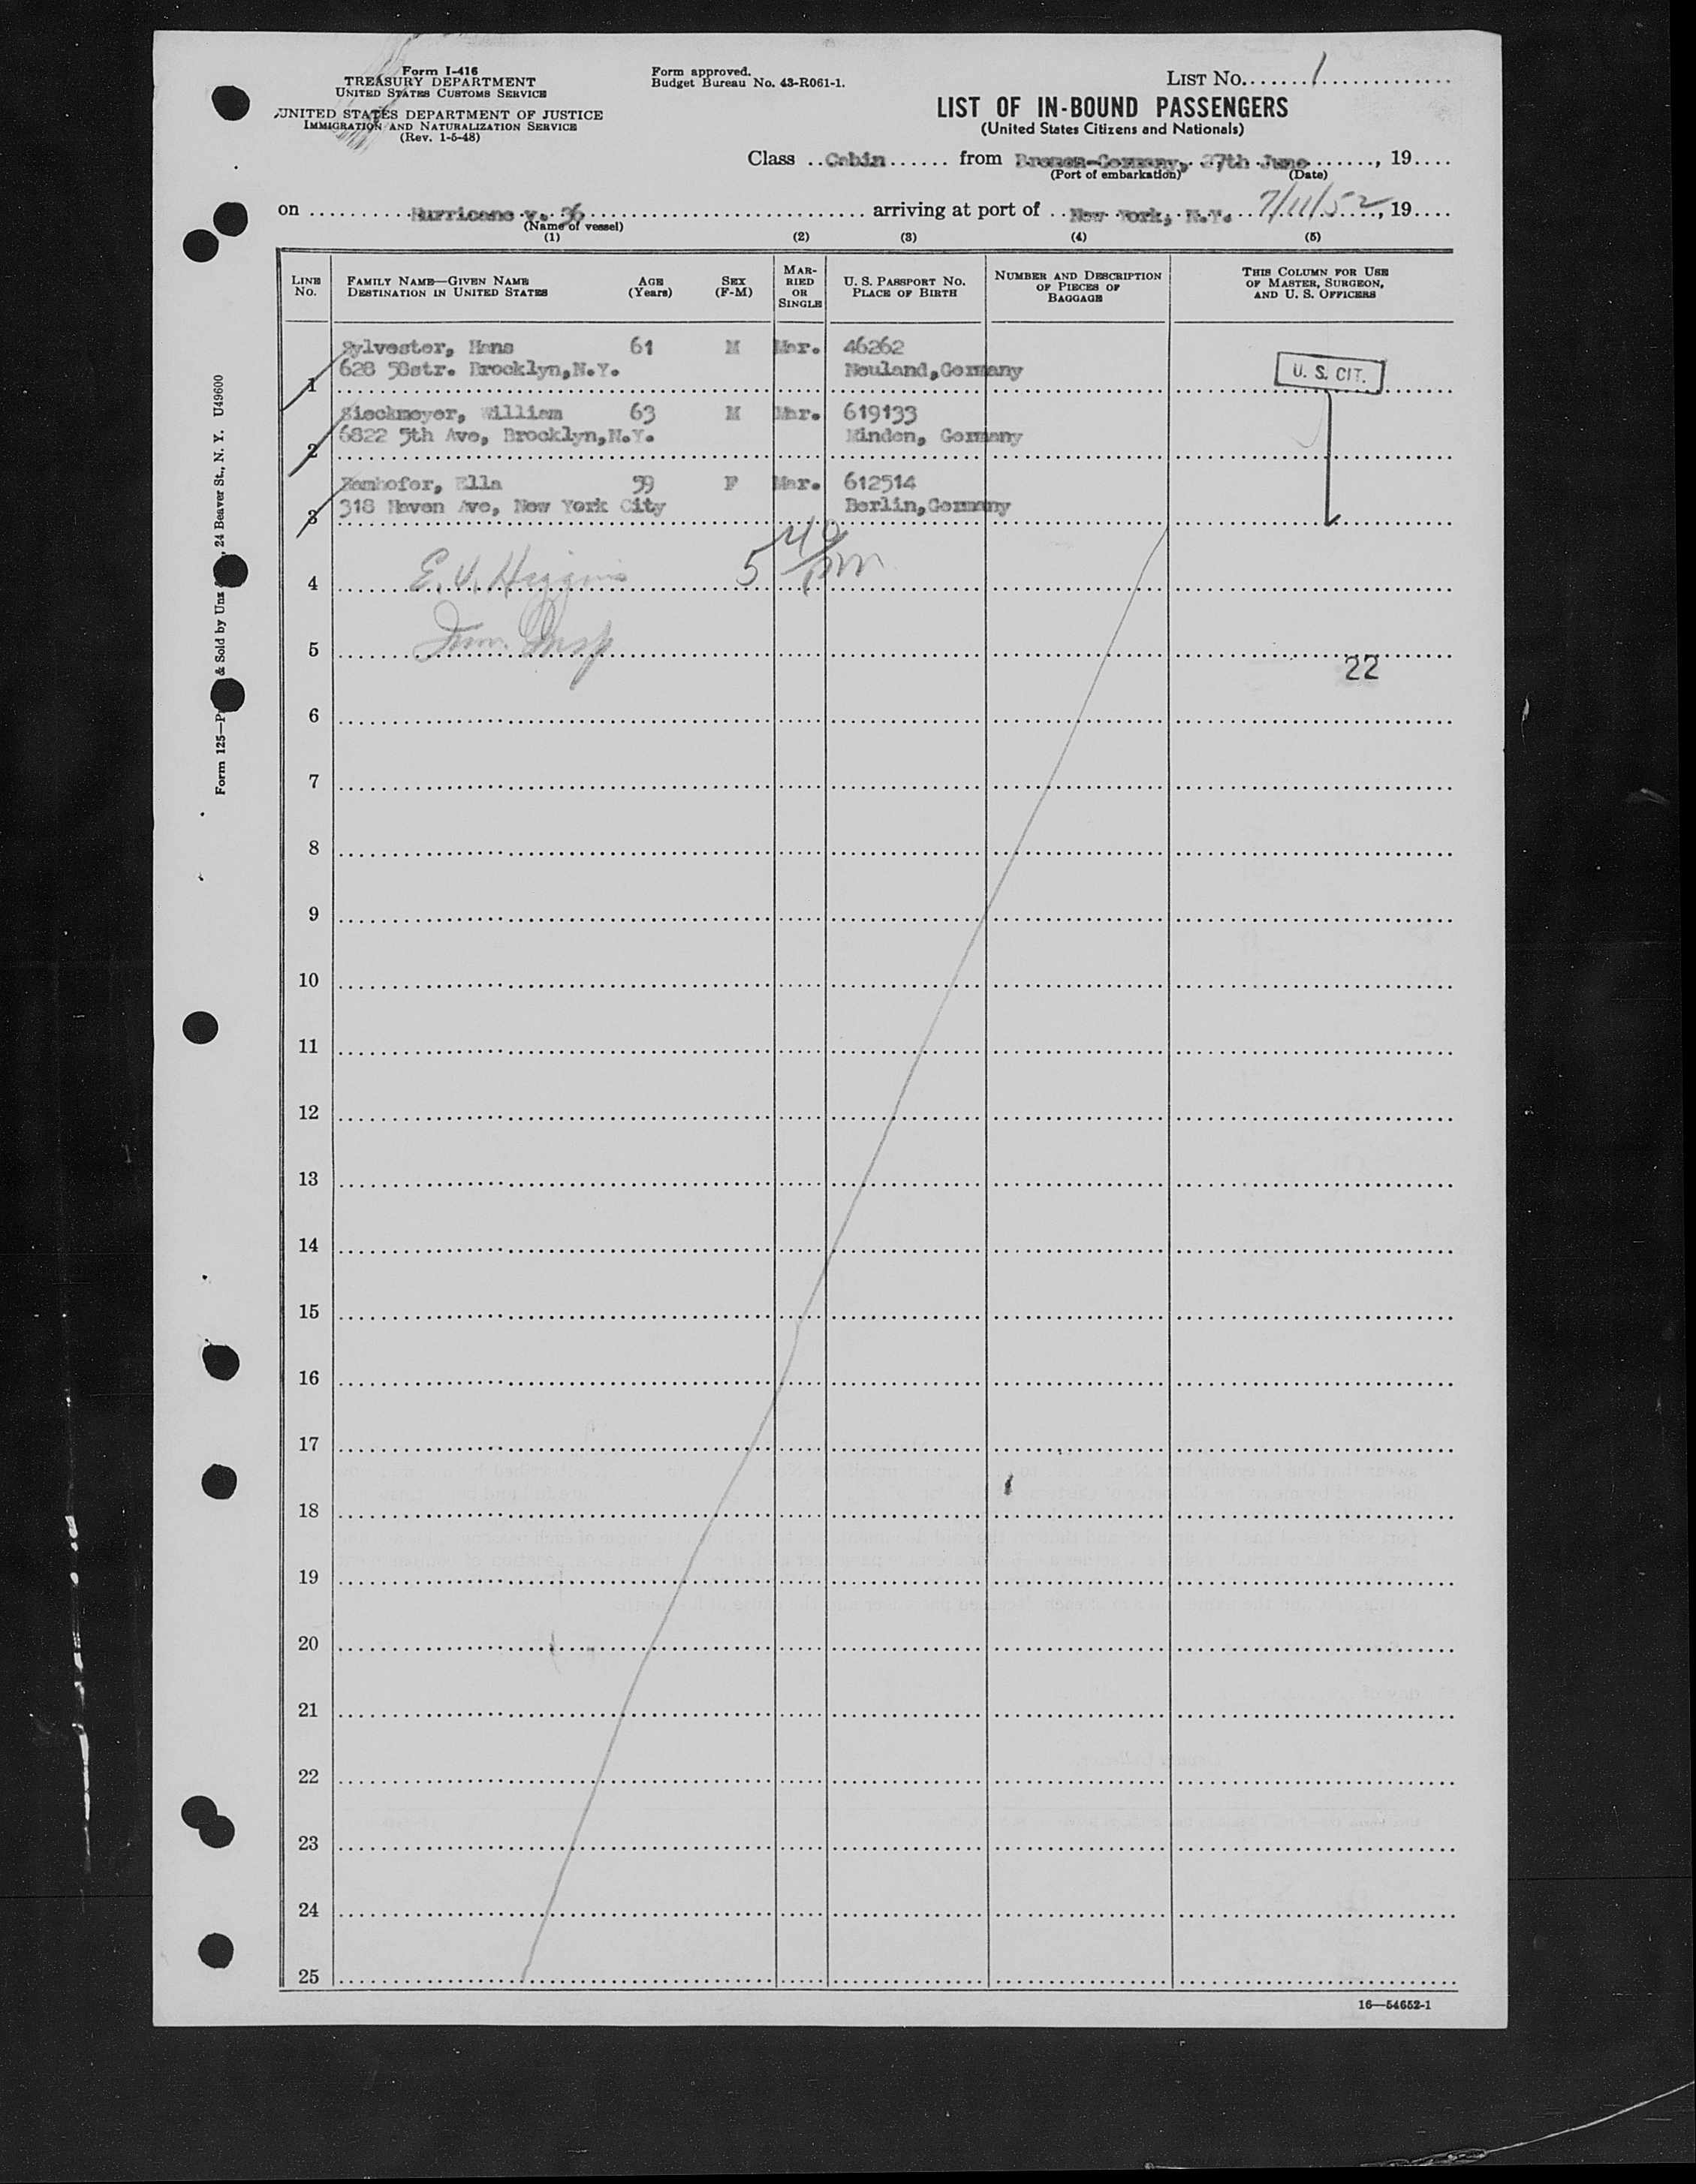 Form I-416
TREASURY DEPARTMENT
UNITED STATES CUSTOMS SERVICE
UNITED STATES DEPARTMENT OF JUSTICE
IMMIGRATION AND NATURALIZATION SERVICE
(Rev. 1-5-48)
Form approved.
Budget Bureau No. 43-R061-1.
LIST No. 1
LIST OF IN-BOUND PASSENGERS
(United States Citizens and Nationals)
Class Cabin from Bremen-Germany, 27th June, 19
(Port of embarkation) (Date)
on Hurricane v. 36 arriving at port of New York, N.Y. 7/11/52, 19
(Name of vessel)
(1) (2) (3) (4) (5)
LINE No. FAMILY NAME—GIVEN NAME DESTINATION IN UNITED STATES AGE (Years) SEX (F-M) MARRIED OR SINGLE U. S. PASSPORT No. PLACE OF BIRTH NUMBER AND DESCRIPTION OF PIECES OF BAGGAGE THIS COLUMN FOR USE OF MASTER, SURGEON, AND U. S. OFFICERS
Sylvester, Hans 61 M Mar. 46262
1 628 58str. Brooklyn,N.Y. Neuland,Germany U. S. CIT.
Sieckmeyer, William 63 M Mar. 619133
2 6822 5th Ave, Brooklyn,N.Y. Minden, Germany
Ella 59 F Mar. 612514
3 318 Haven Ave, New York City Berlin,Germany
4 E. V. Higgins 5 40 PM
5 Imm. Insp
22
6
7
8
9
10
11
12
13
14
15
16
17
18
19
20
21
22
23
24
25
16—54652-1
Form 125—P & Sold by Unz , 24 Beaver St., N. Y. U49600